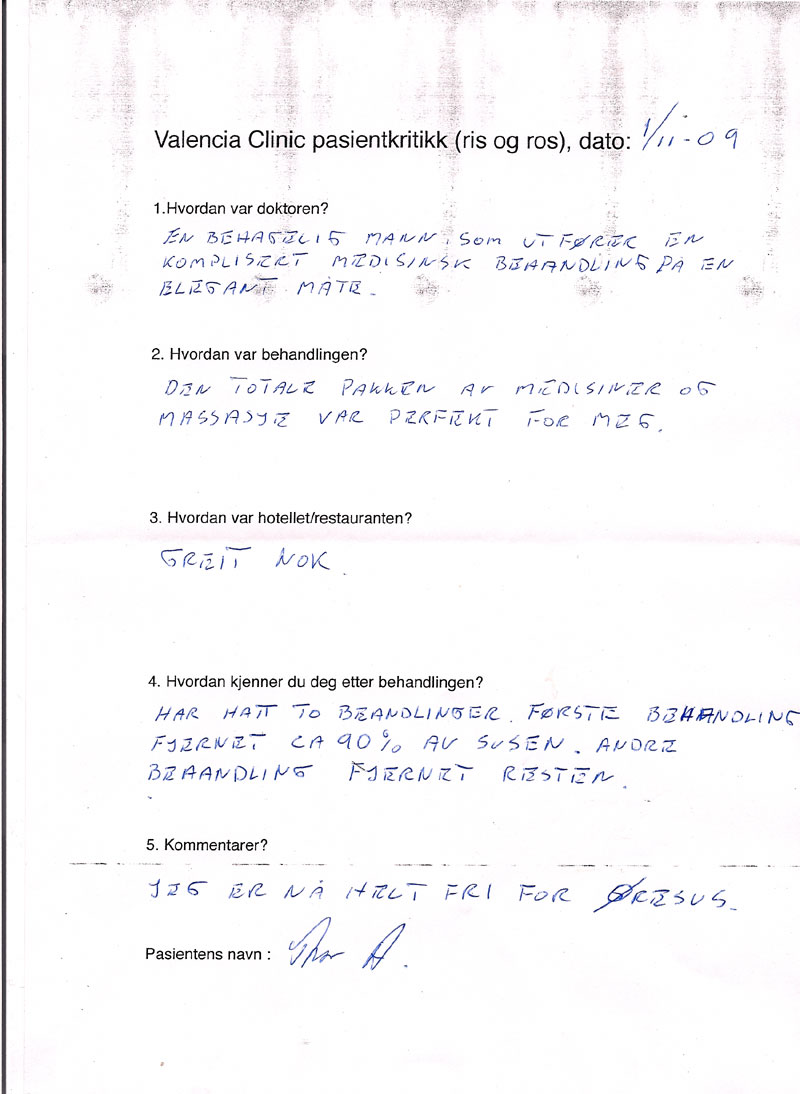 Valencia Clinic pasientkritikk (ris og ros), dato: 1/11-09
1.Hvordan var doktoren?
EN BEHAGELIG MANN, SOM UTFØRER EN
KOMPLISERT MEDISINSK BEHANDLING PÅ EN
ELEGANT MÅTE.
2. Hvordan var behandlingen?
DEN TOTALE PAKKEN AV MEDISINER OG
MASSASJE VAR PERFEKT FOR MEG.
3. Hvordan var hotellet/restauranten?
GREIT NOK.
4. Hvordan kjenner du deg etter behandlingen?
HAR HATT TO BEANDLINGER. FØRSTE BEHANDLING
FJERNET CA 90% AV SUSEN. ANDRE
BEAANDLING FJERNET RESTEN.
5. Kommentarer?
JEG ER NÅ HELT FRI FOR ØRESUS.
Pasientens navn : Thor A.